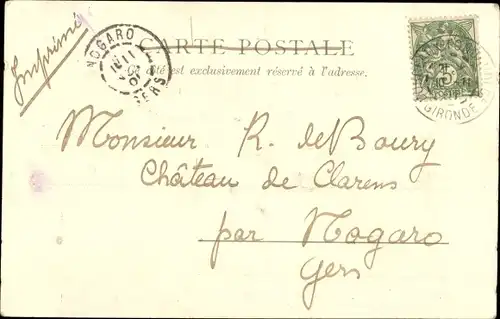 Imprimé
CARTE POSTALE
Ce côté est exclusivement réservé à l'adresse.
NOGARO
GERS
GIRONDE
Monsieur R. de Boury
Château de Clarens
par Nogaro
Gers